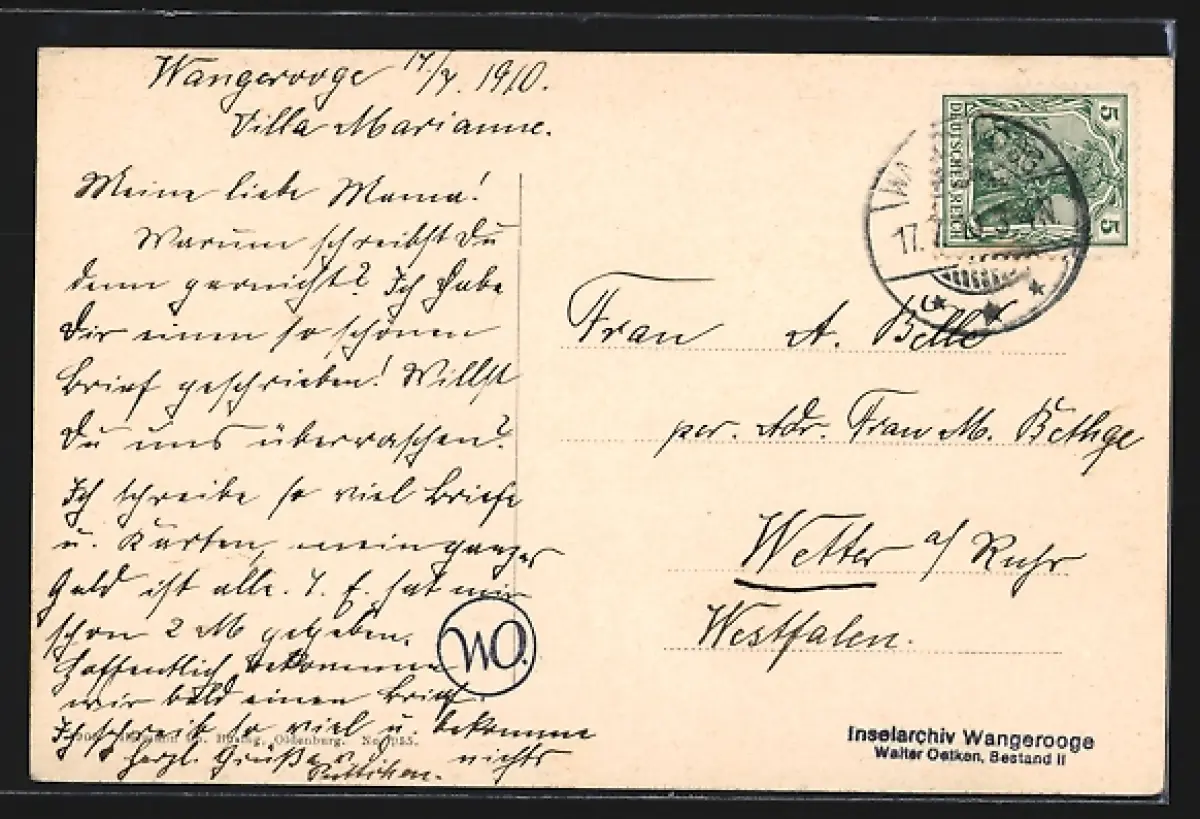 Wangerooge 17/7. 1910.
Villa Marianne.
Meine liebe Mama!
Warum schreibst Du
denn garnicht? Ich habe
Dir einen so schönen
Brief geschrieben! Willst
Du uns überraschen?
Ich schreibe so viel Briefe
u. Karten, mein ganzes
Geld ist alle. T. E. hat mir
schon 2 M gegeben.
Hoffentlich bekommen
wir bald einen Brief.
Ich schreib so viel u bekomme
nichts
Herzl. Grüße
WO.
Oldenburg.
DEUTSCHES REICH
5
5
17.
Frau A. Belle
per. Adr. Frau M. Bethge
Wetter a/ Ruhr
Westfalen.
Inselarchiv Wangerooge
Walter Oetken, Bestand II